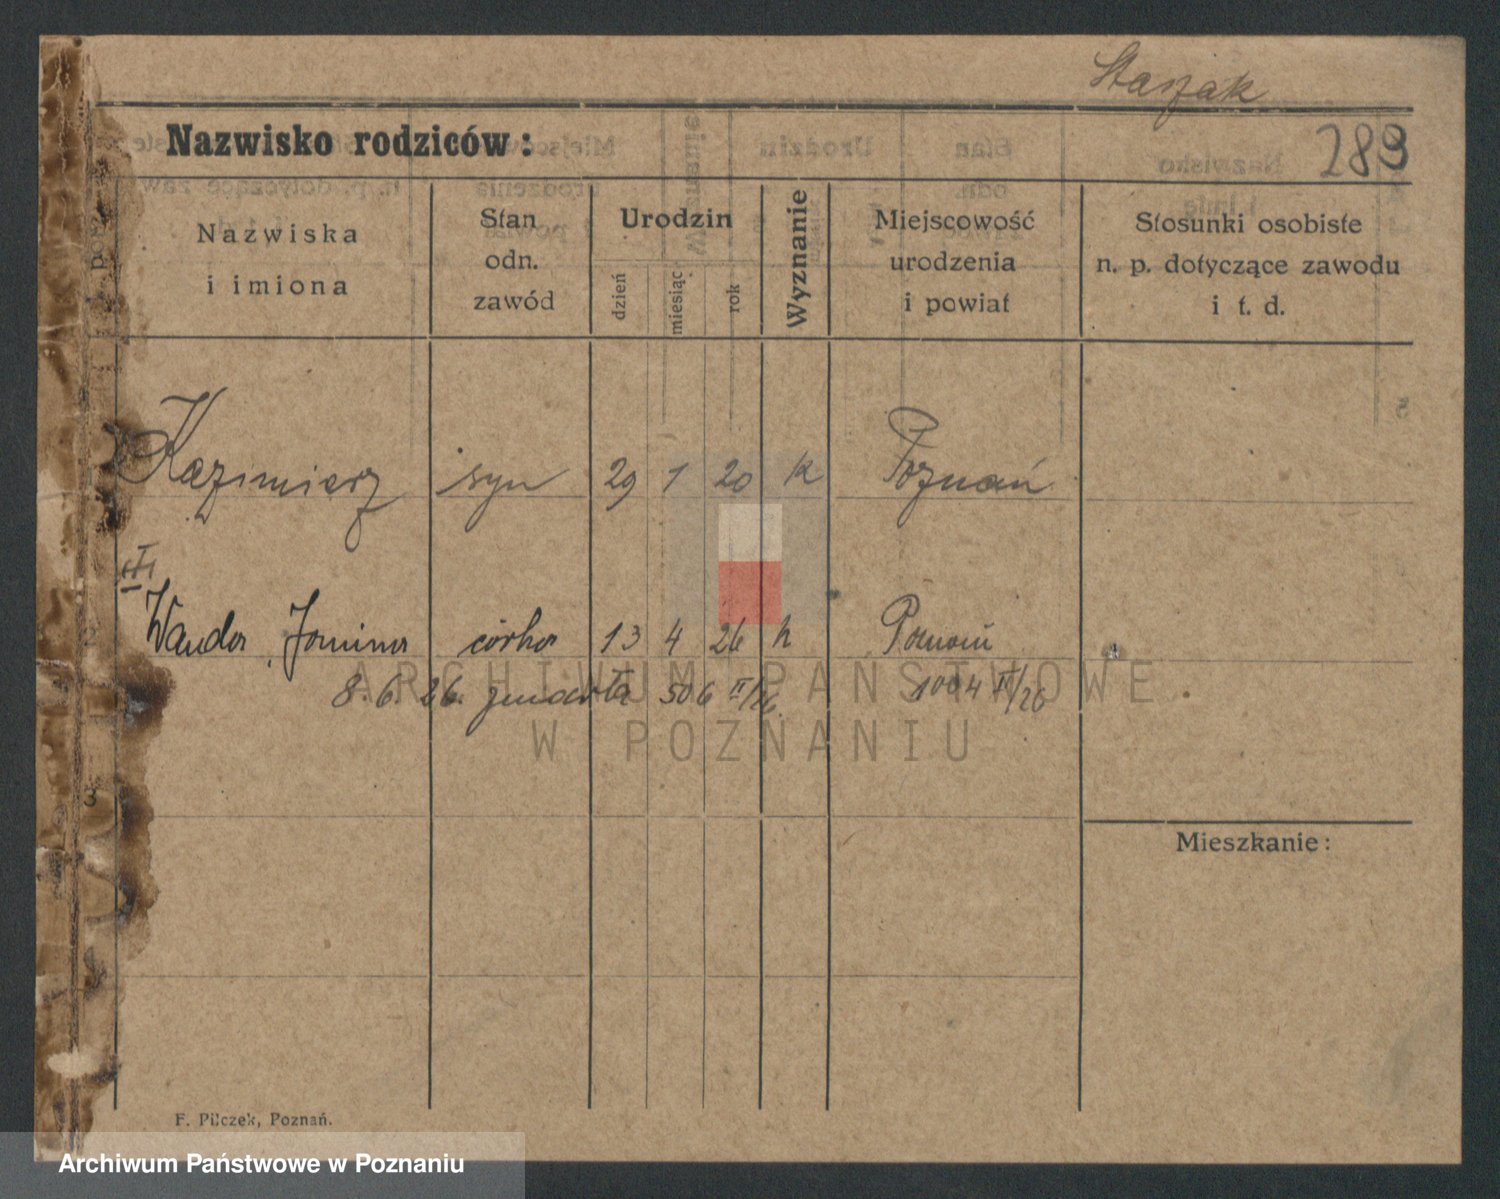 Staszak
Nazwisko rodziców :
289
Nazwiska
i imiona
Stan
odn.
zawód
Urodzin
dzień
miesiąc
rok
Wyznanie
Miejscowość
urodzenia
i powiat
Stosunki osobiste
n. p. dotyczące zawodu
i t. d.
Kazimierz syn 29 1 20 k Poznań
III
2 Wanda, Janina córka 13 4 26 k Poznań
8. 6. 26. zmarła 506 II/26. 1004 II/26
3
Mieszkanie :
F. Pilczek, Poznań.
ARCHIWUM PAŃSTWOWE
W POZNANIU
Archiwum Państwowe w Poznaniu